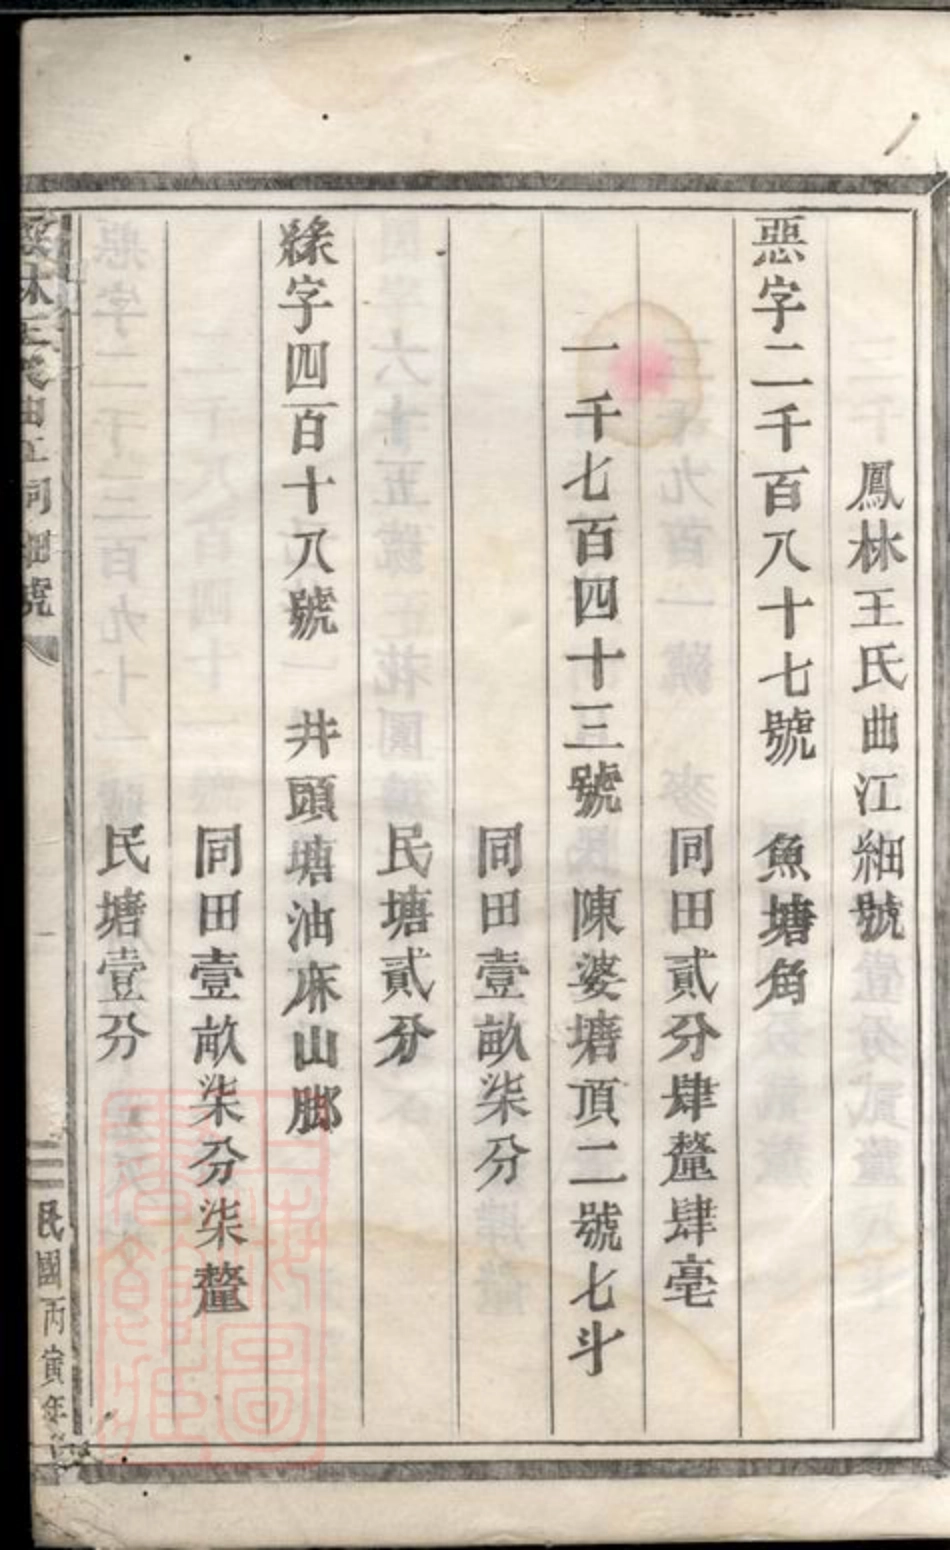 鳳林王氏曲江細號
惡字二千百八十七號　魚塘角
同田貳分肆釐肆毫
一千七百四十三號　陳婆塘頂二號七斗
同田壹畝柒分
民塘貳分
緣字四百十八號　井頭塘油麻山脚
同田壹畝柒分柒釐
民塘壹分
林王氏曲江祠細號
二
民國丙寅年